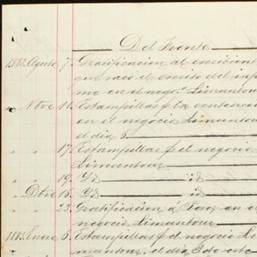 Del frente
1883 Agosto 7. Gratificacion al escribiente
que saco el envio del infor
me en el negº Limantour
Nbre 11. Estampillas pª la contestacion
en el negocio Limantour
el dia 8
" " 17. Estampillas pª el negocio
Limantour
" " 19. Yd id
Dbre 15. Yd id
" " 22. Gratificacion á en el
negocio Limantour
Enero 5. Estampillas pª el negocio
mantour, el dia 3 de este